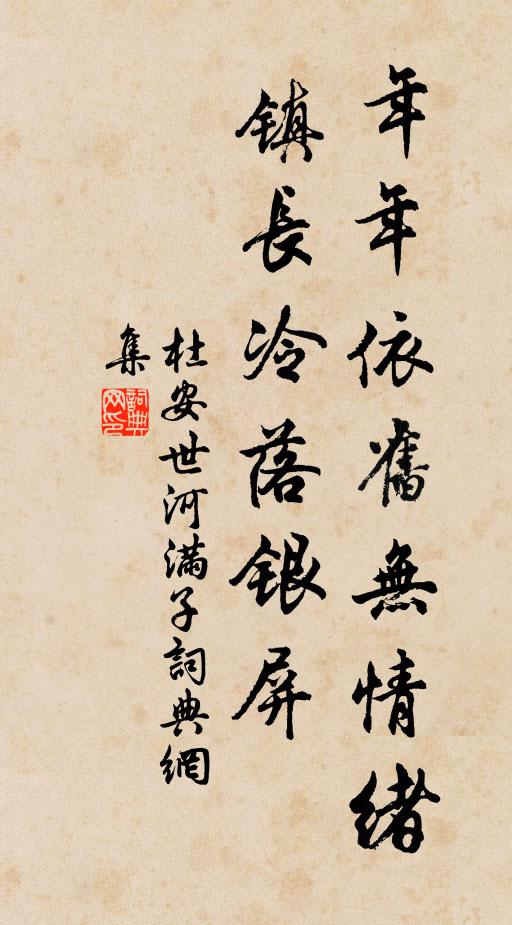 年年依舊無情緒
鎮長冷落銀屏
杜安世河滿子詞典網
集
詞典网印